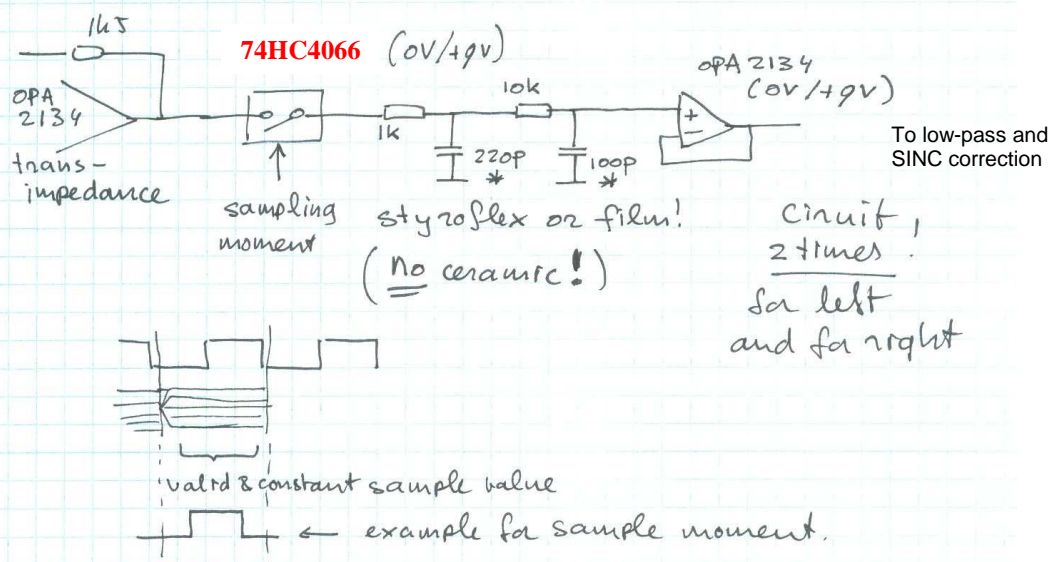 1k5
74HC4066 (0V/+9V)
OPA 2134
(0V/+9V)
OPA
2134
trans-
impedance
1k
10k
220p
*
100p
*
+
−
To low-pass and
SINC correction
sampling
moment
styroflex or film!
(no ceramic!)
Circuit,
2 times.
for left
and for right
valid & constant sample value
← example for sample moment.